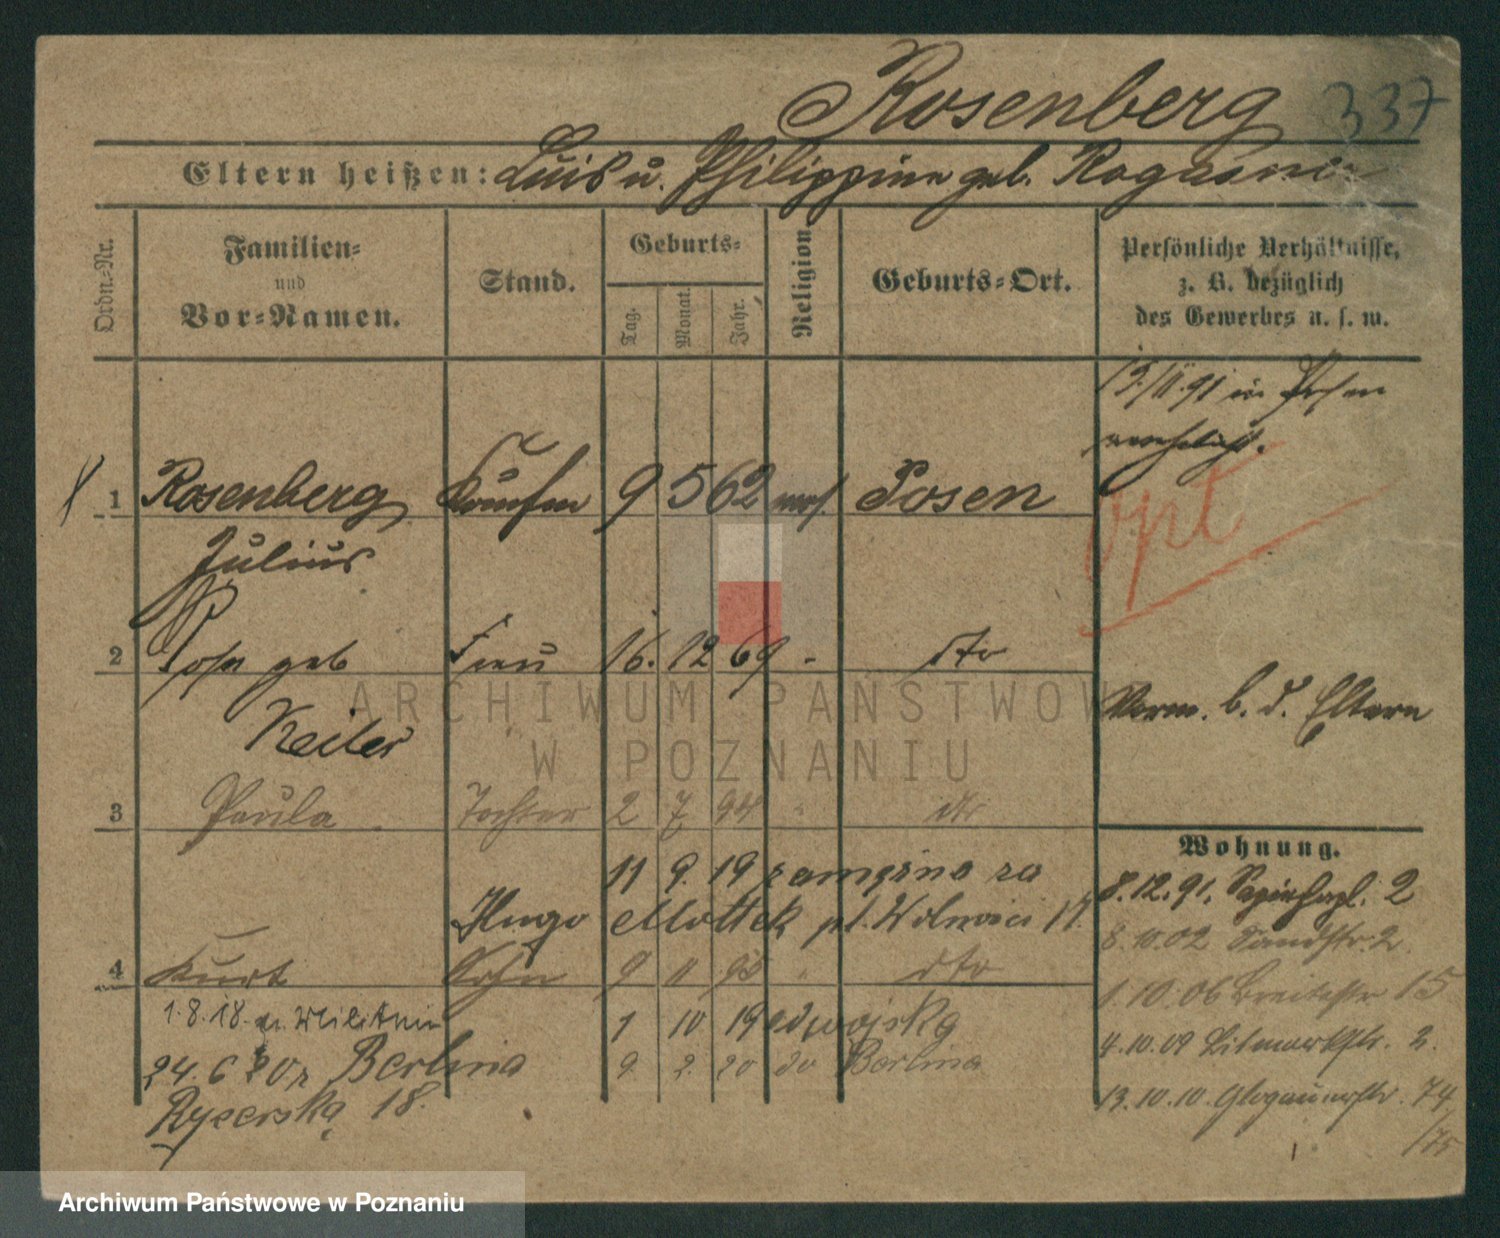 Rosenberg 337
Eltern heißen: Luis u. Philippine geb. Rogasner
Ordn.-Nr.
Familien-
und
Vor-Namen.
Stand.
Geburts-
Tag.
Monat.
Jahr.
Religion.
Geburts-Ort.
Persönliche Verhältnisse,
z. B. bezüglich
des Gewerbes u. s. w.
in Posen
verehelicht.
1 Rosenberg Kaufm 9 5 62 mos. Posen
Julius
opt
2 Rosa geb Frau 16. 12 69 - dto
Keiler
Verm. b. d. Eltern
3 Paula Tochter 2 7 94 " dto
Wohnung.
11 9. 19 zamężna za
8.12.91. Sapiehapl. 2
Hugo Mottek pl. Wolności 17.
8.10.02 Sandstr. 2.
4 Kurt Sohn 9 11 95 " dto
1.10.06 Breitestr 15
1.8.18. zu Militair
1 10 19 od wojska
4.10.09 Bismarckstr. 2.
24. 6 20 z Berlina
9. 2. 20 do Berlina
13.10.10. Glogauerstr. 74
/75
Rycerska 18.
ARCHIWUM PAŃSTWOWE
W POZNANIU
Archiwum Państwowe w Poznaniu